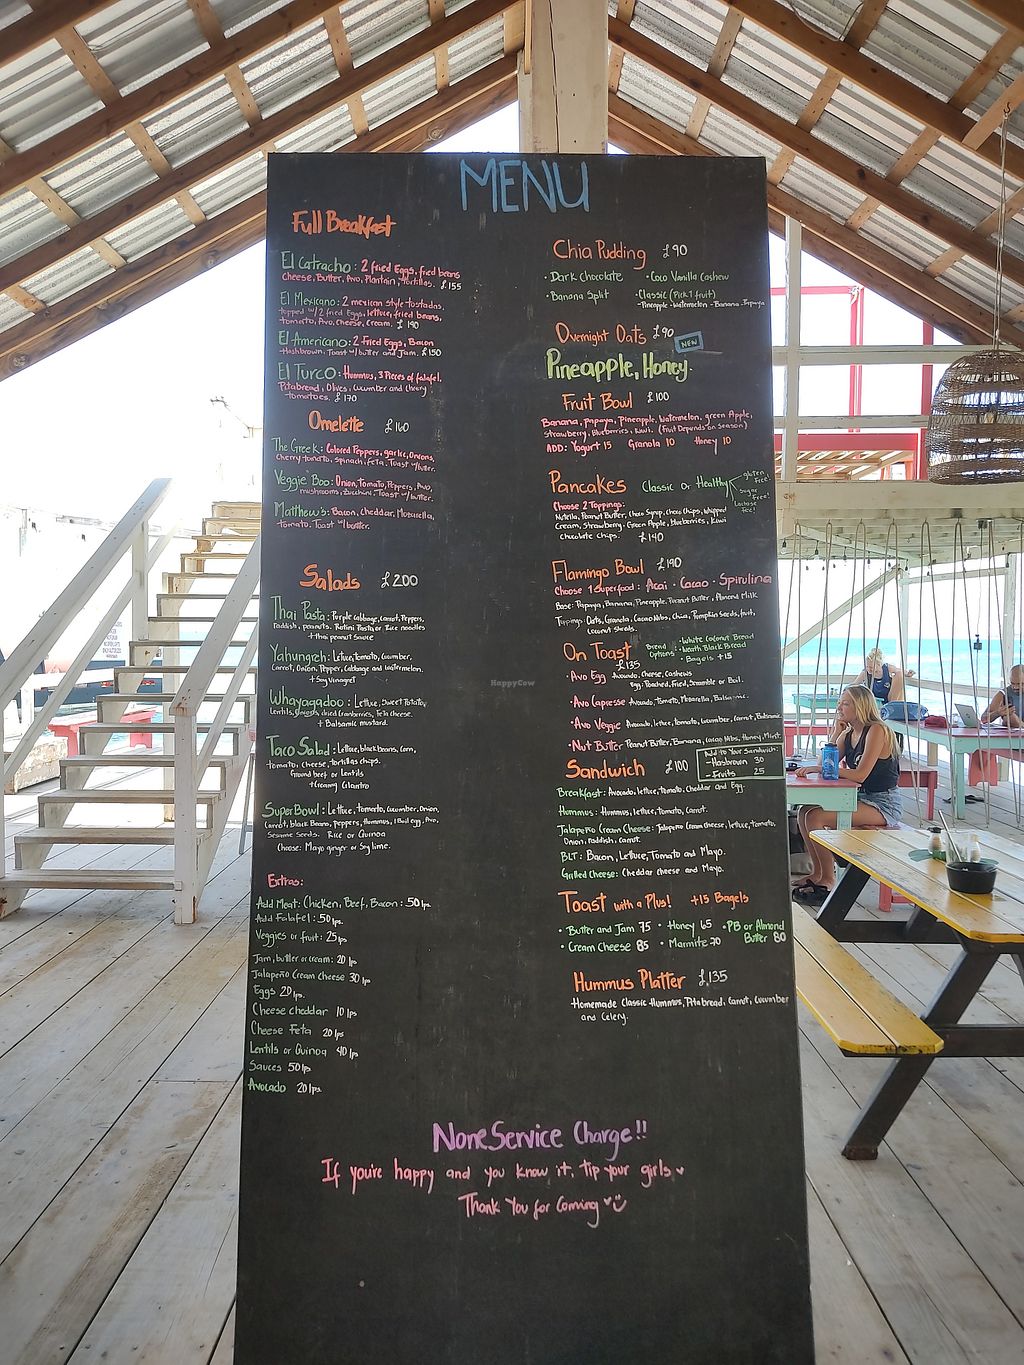 MENU
Full Breakfast
El Catracho: 2 fried Eggs, fried beans
Cheese, Butter, Avo, Plantain, Tortillas. £155
El Mexicano: 2 mexican style tostadas,
topped w/ 2 fried Eggs, lettuce, fried beans,
tomato, Avo, cheese, cream. £ 190
El Americano: 2 Fried Eggs, Bacon
Hashbrown, Toast w/ butter and Jam. £150
El Turco: Hummus, 3 Pieces of falafel,
Pitabread, Olives, Cucumber and cherry
tomatoes. £ 170
Omelette £160
The Greek: Colored Peppers, garlic, Onions,
Cherry tomato, spinach, Feta. Toast w/ butter.
Veggie Boo: Onion, Tomato, Peppers, Avo,
mushrooms, Zucchini. Toast w/ butter.
Matthew's: Bacon, Cheddar, Mozarella,
tomato. Toast w/ butter.
Salads £200
Thai Pasta: Purple cabbage, Carrot, Peppers,
Raddish, peanuts. Rotini Pasta or Rice noodles
+thai peanut sauce
Yahungreh: Lettuce, tomato, cucumber,
Carrot, Onion, Pepper, Cabbage and Watermelon.
+ Soy Vinagret
Whayagadoo: Lettuce, Sweet Potatoe,
Lentils, dried cranberries, Feta cheese.
+ Balsamic mustard.
Taco Salad: Lettuce, black beans, Corn,
tomato, cheese, tortillas chips.
Ground beef or Lentils
+Creamy Cilantro
Super Bowl: Lettuce, tomato, Cucumber, Onion,
Carrot, black Beans, peppers, Hummus, 1 Boil egg, Avo,
Sesame Seeds. Rice or Quinoa
Choose: Mayo ginger or Soy lime.
Extras:
Add Meat: Chicken, Beef, Bacon: 50 lps.
Add Falafel: 50 lps.
Veggies or fruit: 25 lps
Jam, butter or cream: 20 lps
Jalapeño Cream Cheese 30 lps
Eggs 20 lps.
Cheese cheddar 10 lps
Cheese Feta 20 lps
Lentils or Quinoa 40 lps
Sauces 50 lps
Avocado 20 lps.
Chia Pudding £90
• Dark chocolate • Coco Vanilla Cashew
• Banana Split • Classic (Pick 1 fruit)
-Pineapple - Watermelon - Banana - Papaya
Overnight Oats £90 NEW
Pineapple, Honey.
Fruit Bowl £100
Banana, papaya, Pineapple, Watermelon, green Apple,
strawberry, Blueberries, kiwi. (Fruit Depends on season)
ADD: Yogurt 15 Granola 10 Honey 10
Pancakes Classic Or Healthy
gluten free!
Sugar free!
Lactose free!
Choose 2 Toppings:
Nutella, Peanut Butter, Choco Syrup, Choco Chips, Whipped
Cream, Strawberry, Green Apple, blueberries, Kiwi
Chocolate chips. £140
Flamingo Bowl £190
Choose 1 Superfood: Acai • Cacao • Spirulina
Base: Papaya, Banana, Pineapple, Peanut Butter, Almond Milk
Toppings: Oats, Granola, Cacao Nibs, Chia, Pumpkin Seeds, fruit,
Coconut shreds.
On Toast £135
Bread Options: • White Coconut Bread
• Wearth Black Bread
• Bagels +15
• Avo Egg Avocado, Cheese, Cashews
Egg: Poached, Fried, Scramble or Boil.
• Avo Capresse Avocado, Tomato, Mozarella, Balsamic.
• Avo Veggie Avocado, lettuce, tomato, Cucumber, Carrot, Balsamic.
• Nut Butter Peanut Butter, Banana, Cacao Nibs, Honey, Mint.
Sandwich £100
Add to Your Sandwich:
-Hasbrown 30
-Fruits 25
Breakfast: Avocado, lettuce, tomato, Cheddar and Egg.
Hummus: Hummus, lettuce, tomato, carrot.
Jalapeño Cream Cheese: Jalapeño Cream cheese, lettuce, tomato,
Onion, raddish, carrot.
BLT: Bacon, Lettuce, Tomato and Mayo.
Grilled Cheese: Cheddar cheese and Mayo.
Toast with a Plus! +15 Bagels
• Butter and Jam 75 • Honey 65 • PB or Almond
Butter 80
• Cream Cheese 85 • Marmite 70
Hummus Platter £135
-Homemade Classic Hummus, Pitabread, Carrot, Cucumber
and Celery.
None Service Charge!!
If you're happy and you know it, tip your girls
Thank You for Coming
HappyCow